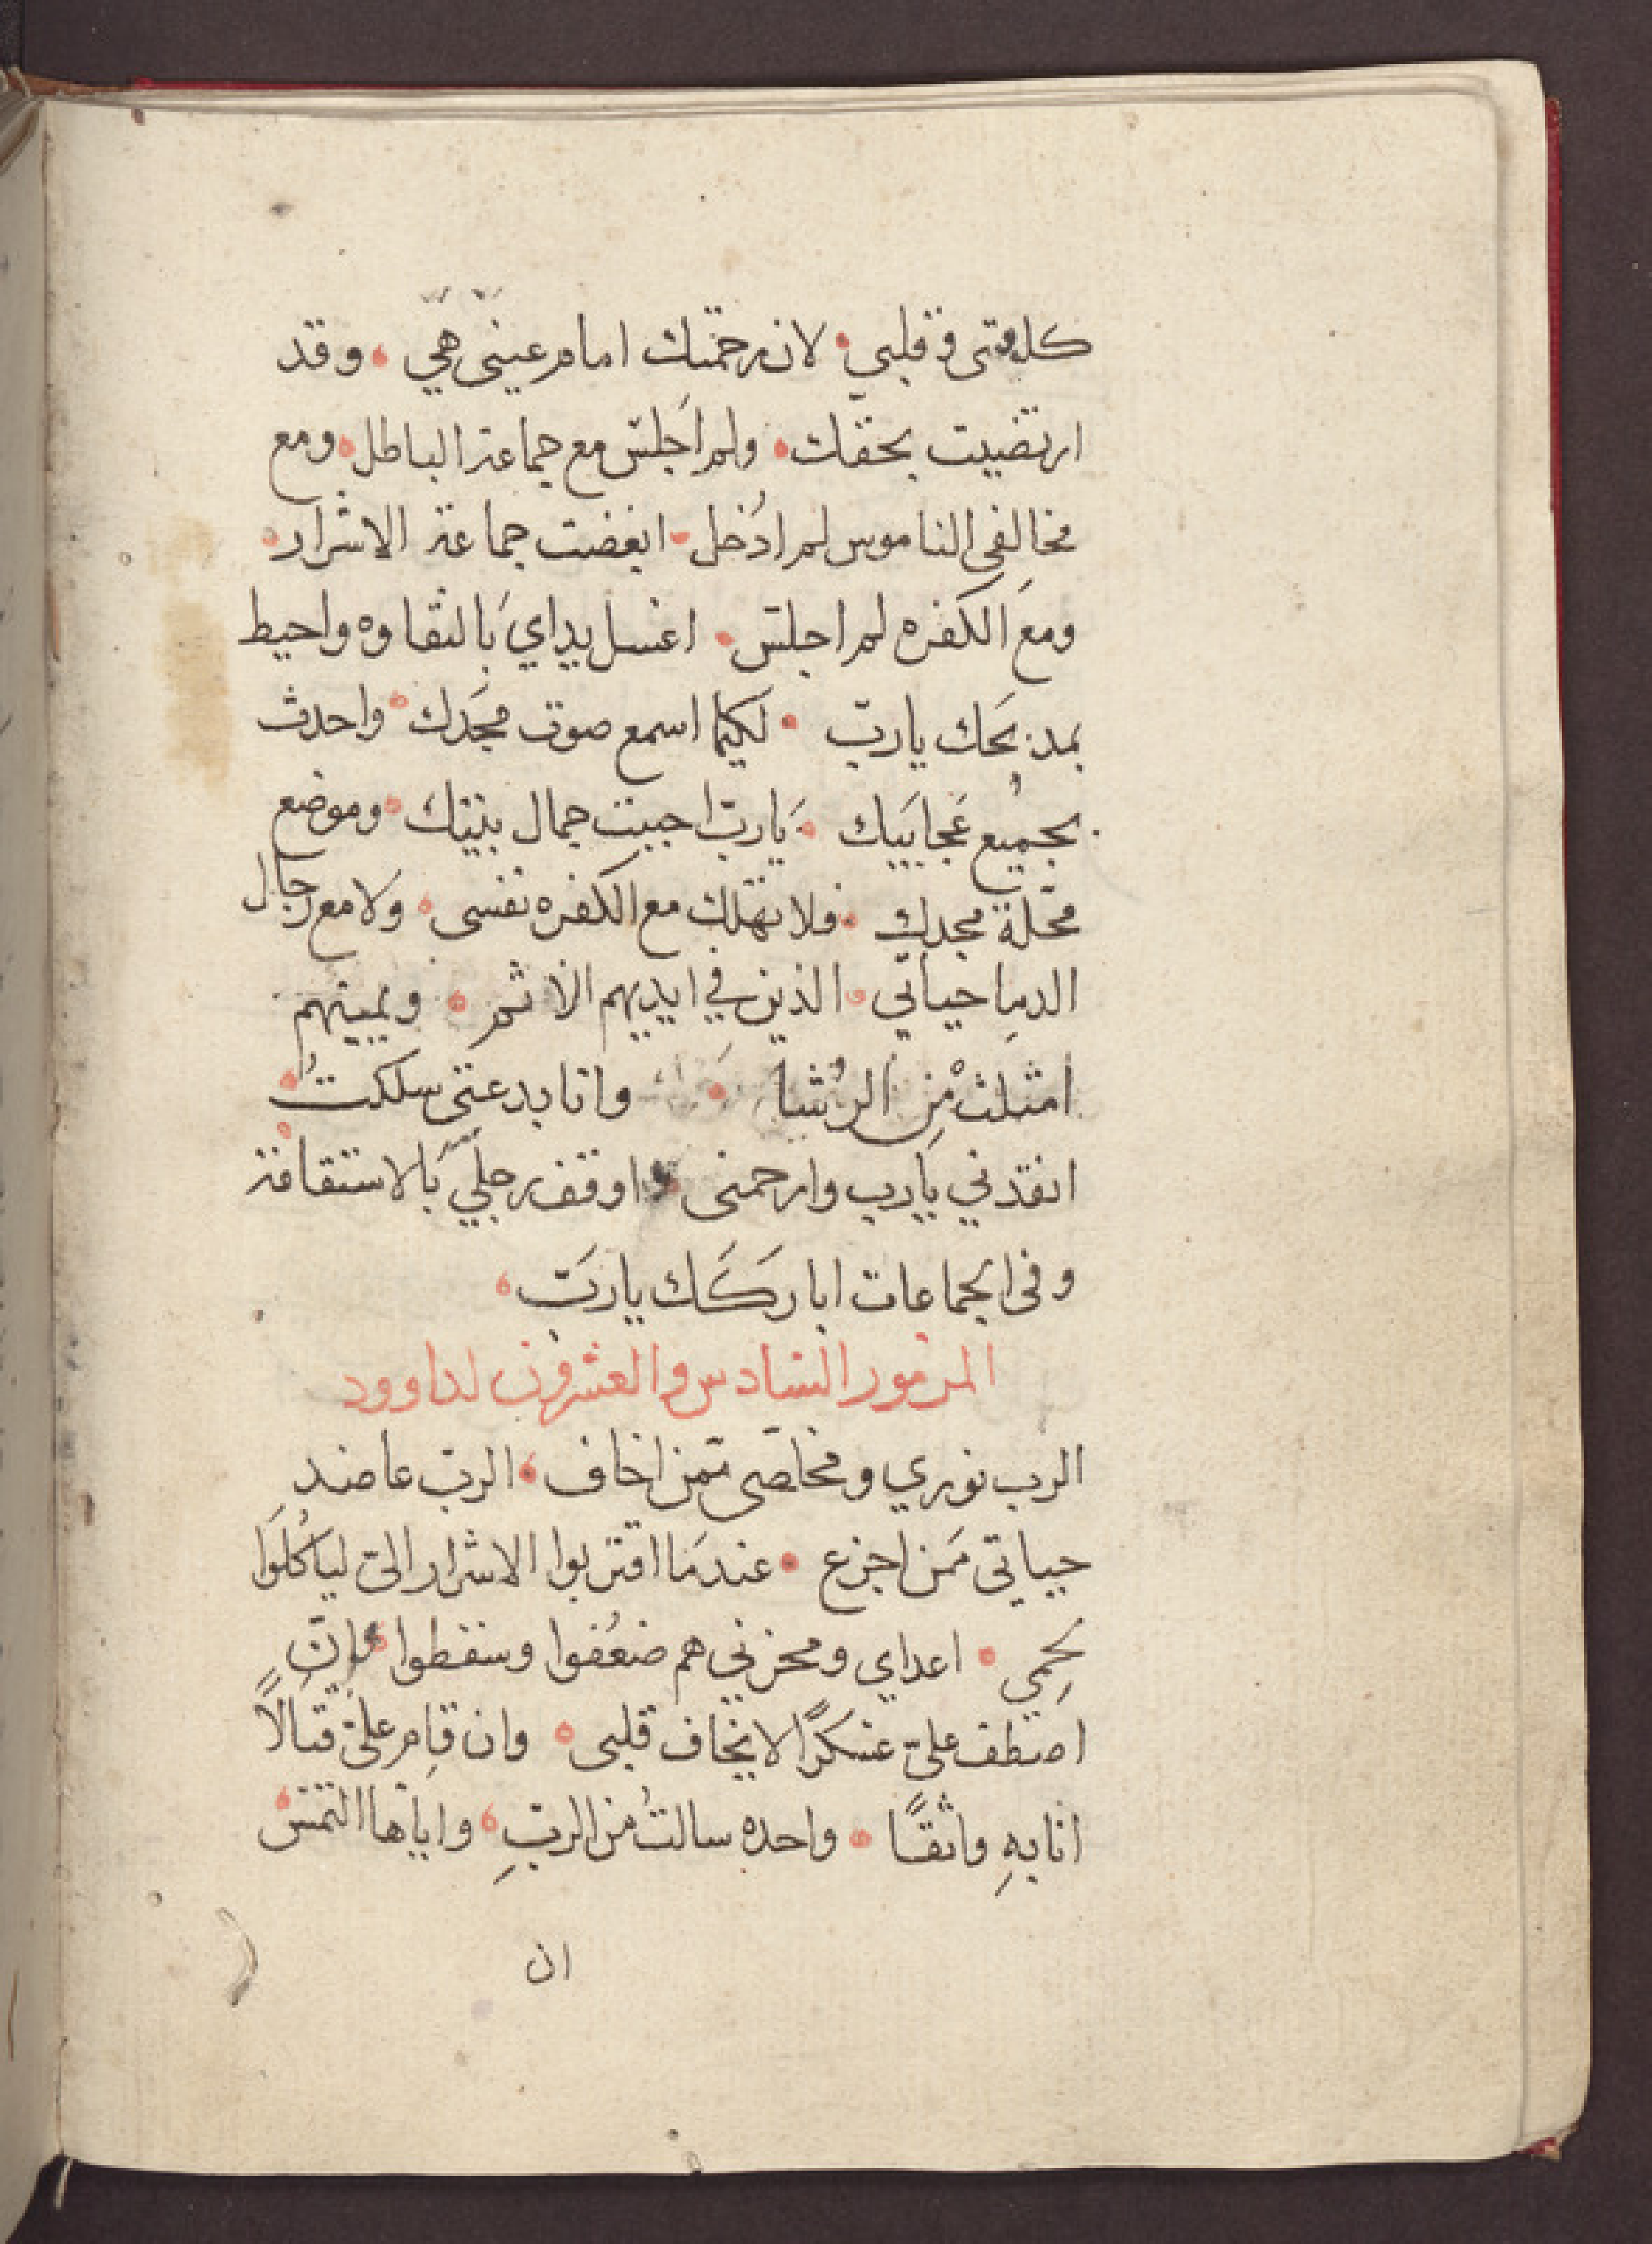 كلوتى وقلبي لان رحمتك امام عينى هي وقد
ارتضيت بحقك ولم اجلس مع جماعة الباطل ومع
مخالفى الناموس لم ادخل ابغضت جماعة الاشرار
ومع الكفره لم اجلس اغسل يداي بالنقاوه واحيط
بمذبحك يارب لكيما اسمع صوت مجدك واحدث
بجميع عجاييك يارب احببت جمال بيتك وموضع
محلة مجدك فلا تهلك مع الكفره نفسى ولا مع رجال
الدما حياتي الذين في ايديهم الاثم ويمينهم
امتلت من الرشا وانا بدعتى سلكت
انقذني يارب وارحمنى واوقف رجليّ بالاستقامة
وفى الجماعات اباركك يارب
المزمور السادس والعشرون لداوود
الرب نوري ومخلصى ممن اخاف الربّ عاضد
حياتى ممن اجزع عندما اقتربوا الاشرار الىّ لياكُلوا
لحمي اعداي ومحزني هم ضعُفوا وسقطوا وان
اصطف علىّ عسكرًا لا يخاف قلبى وان قام علىّ قتالاً
انا بهِ واثقًا واحده سالتُ من الربّ واياها التمس
ان